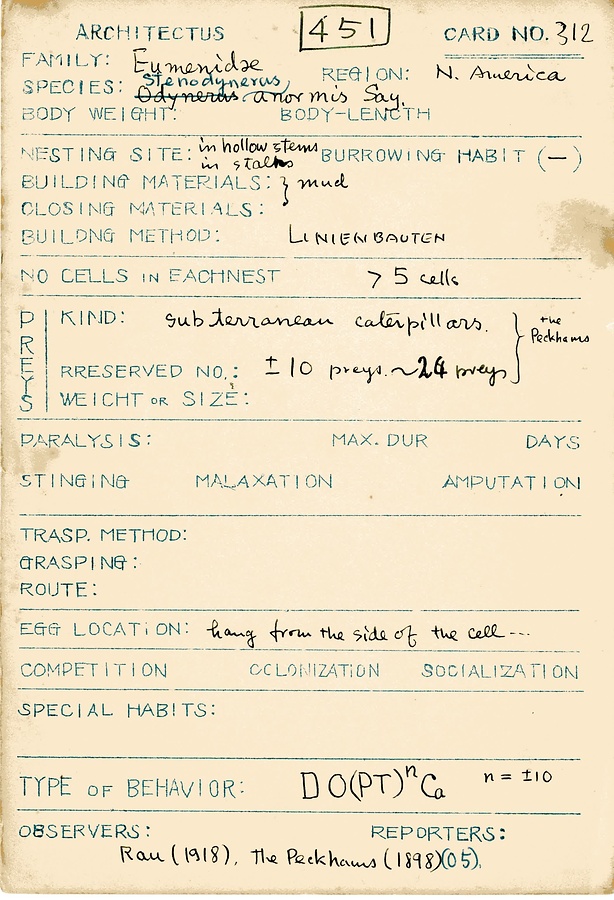 ARCHITECTUS 451 CARD NO. 312
FAMILY: Eumenidae
SPECIES: Stenodynerus Odynerus anormis Say. REGION: N. America
BODY WEIGHT: BODY-LENGTH
NESTING SITE: in hollow stems in stalks BURROWING HABIT (—)
BUILDING MATERIALS: } mud
CLOSING MATERIALS:
BUILDNG METHOD: LINIENBAUTEN
NO CELLS IN EACHNEST > 5 cells
PREYS
KIND: subterranean caterpillars. } the Peckhams
RRESERVED NO.: ±10 preys. ~24 preys
WEIGHT OR SIZE:
PARALYSIS: MAX. DUR DAYS
STINGING MALAXATION AMPUTATION
TRASP. METHOD:
GRASPING:
ROUTE:
EGG LOCATION: hang from the side of the cell ---
COMPETITION COLONIZATION SOCIALIZATION
SPECIAL HABITS:
TYPE OF BEHAVIOR: DO(PT)ⁿCa n = ±10
OBSERVERS: REPORTERS:
Rau (1918), the Peckhams (1898)(05).